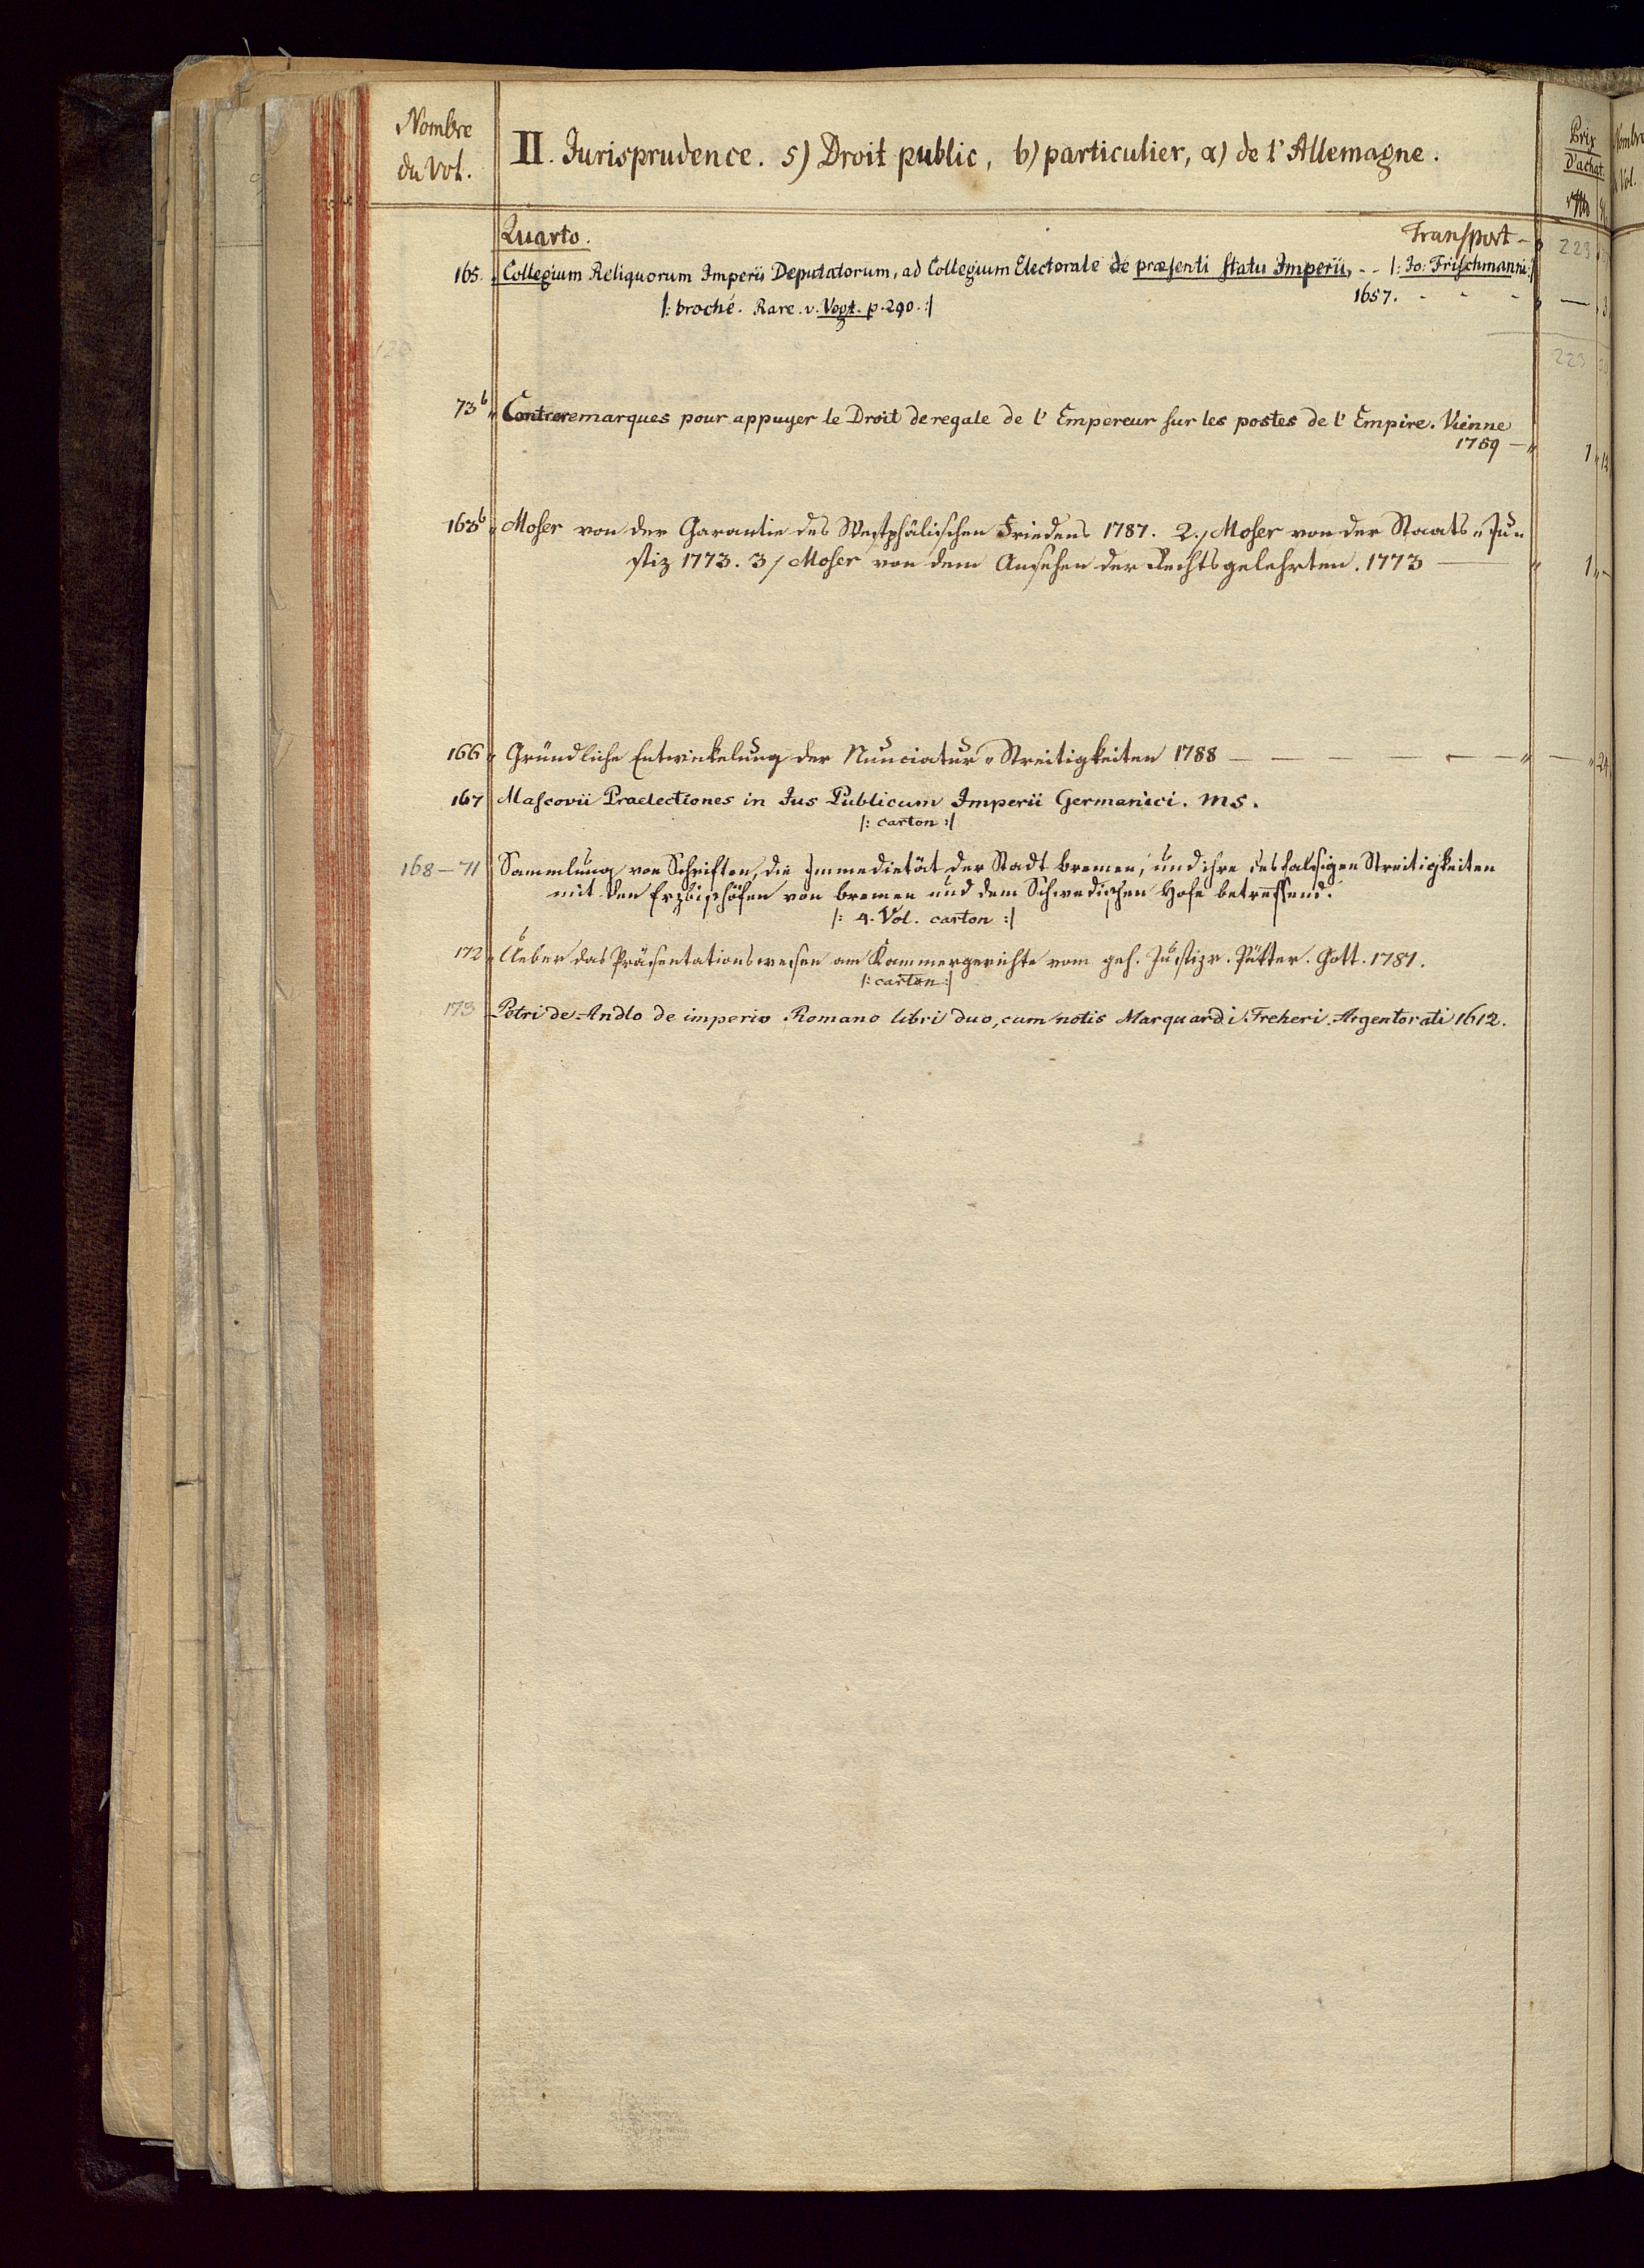 Nombre
du Vol.
II. Jurisprudence. 5) Droit public, b) particulier, α) de l'Allemagne.
Prix
d'achat.
Quarto. Transport - 223
165. Collegium Reliquorum Imperii Deputatorum, ad Collegium Electorale de præsenti statu Imperii, - - |: Jo: Frischmanni :|
1657. - - -
|: broché. Rare. v. Vogt. p. 290. :|
223
73b Contreremarques pour appuyer le Droit de regale de l'Empereur sur les postes de l'Empire. Vienne
1759 - 1 12
165b Moser von der Garantie des Westphälischen Friedens 1787. 2./ Moser von der Staats-Ju-
stiz 1773. 3/ Moser von dem Ansehen der Rechtsgelehrten. 1773 — 1
166 Gründliche Entwickelung der Nunciatur-Streitigkeiten 1788 — — — — — — — 24
167 Mascovii Praelectiones in Jus Publicum Imperii Germanici. ms.
|: carton :|
168-71 Sammlung von Schriften, die Immedietät der Stadt bremen, und ihre desfalsigen Streitigkeiten
mit den Erzbischöfen von bremen und dem Schwedischen Hofe betreffend.
|: 4. Vol. carton :|
172 Ueber das Präsentationswesen am Kammergerichte vom geh. Justizr. Pütter. Gött. 1781.
|: carton :|
173 Petri de Andlo de imperio Romano libri duo, cum notis Marquardi Freheri. Argentorati 1612.